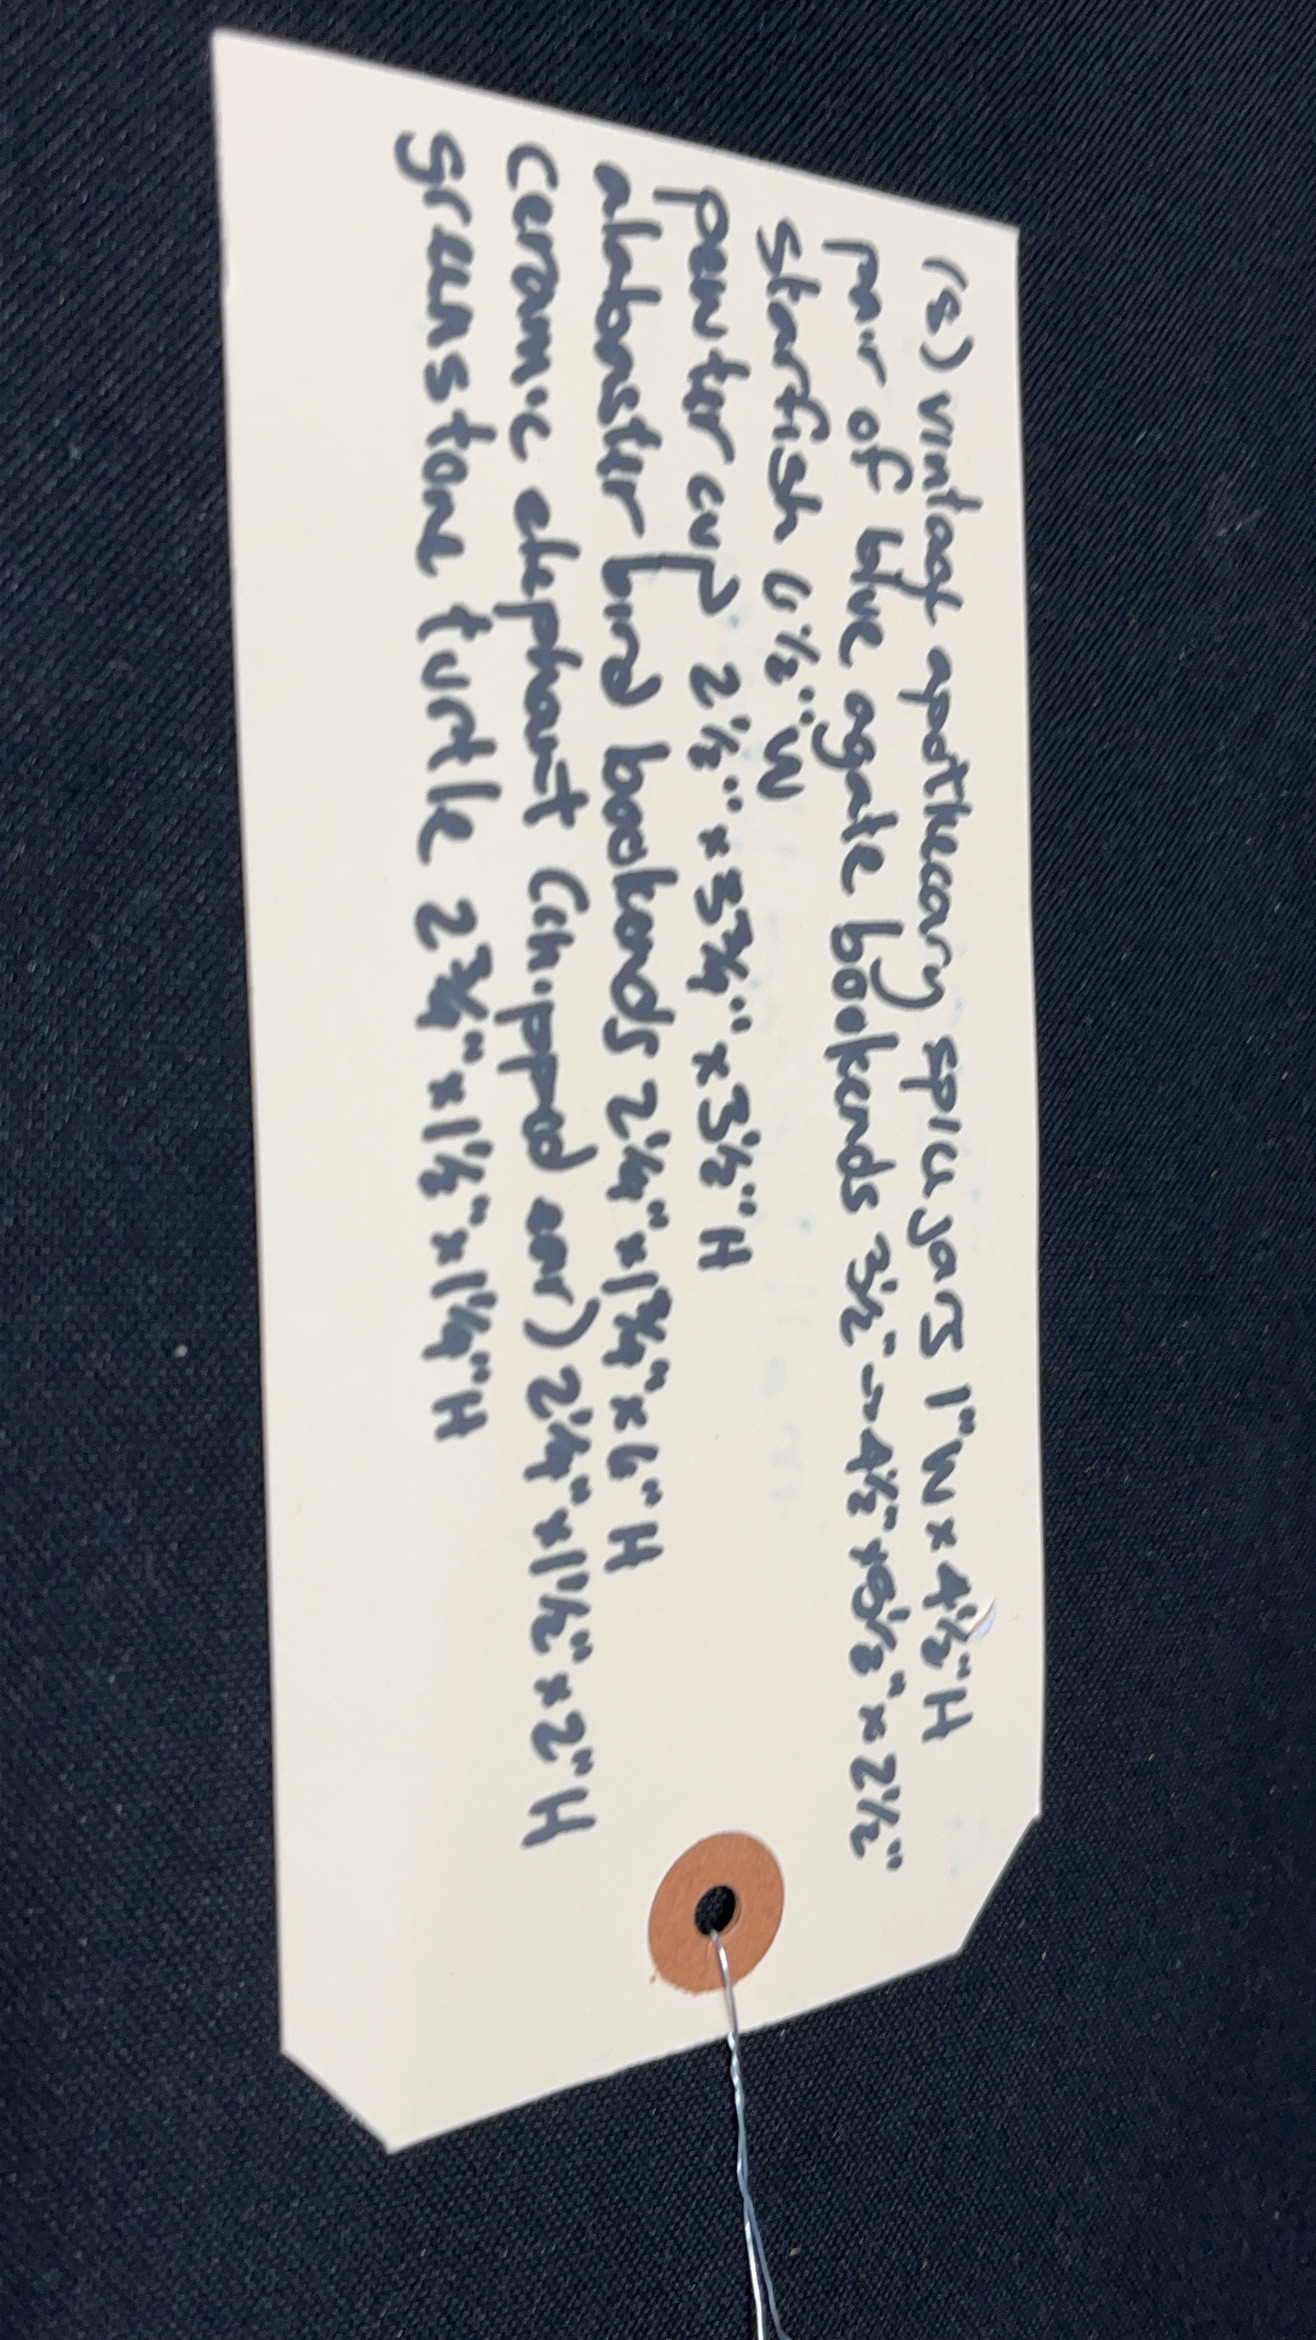 (5) vintage apothecary spice jars 1"W x 4½"H
pair of blue agate bookends 3½" → 4½" x 5½" x 2½"
starfish 6½" W
pewter cup 2½" x 3¾" x 3½" H
alabaster bird bookends 2¼" x 1¾" x 6" H
ceramic elephant (chipped ear) 2¼" x 1½" x 2" H
greenstone turtle 2¾" x 1½" x 1¼" H